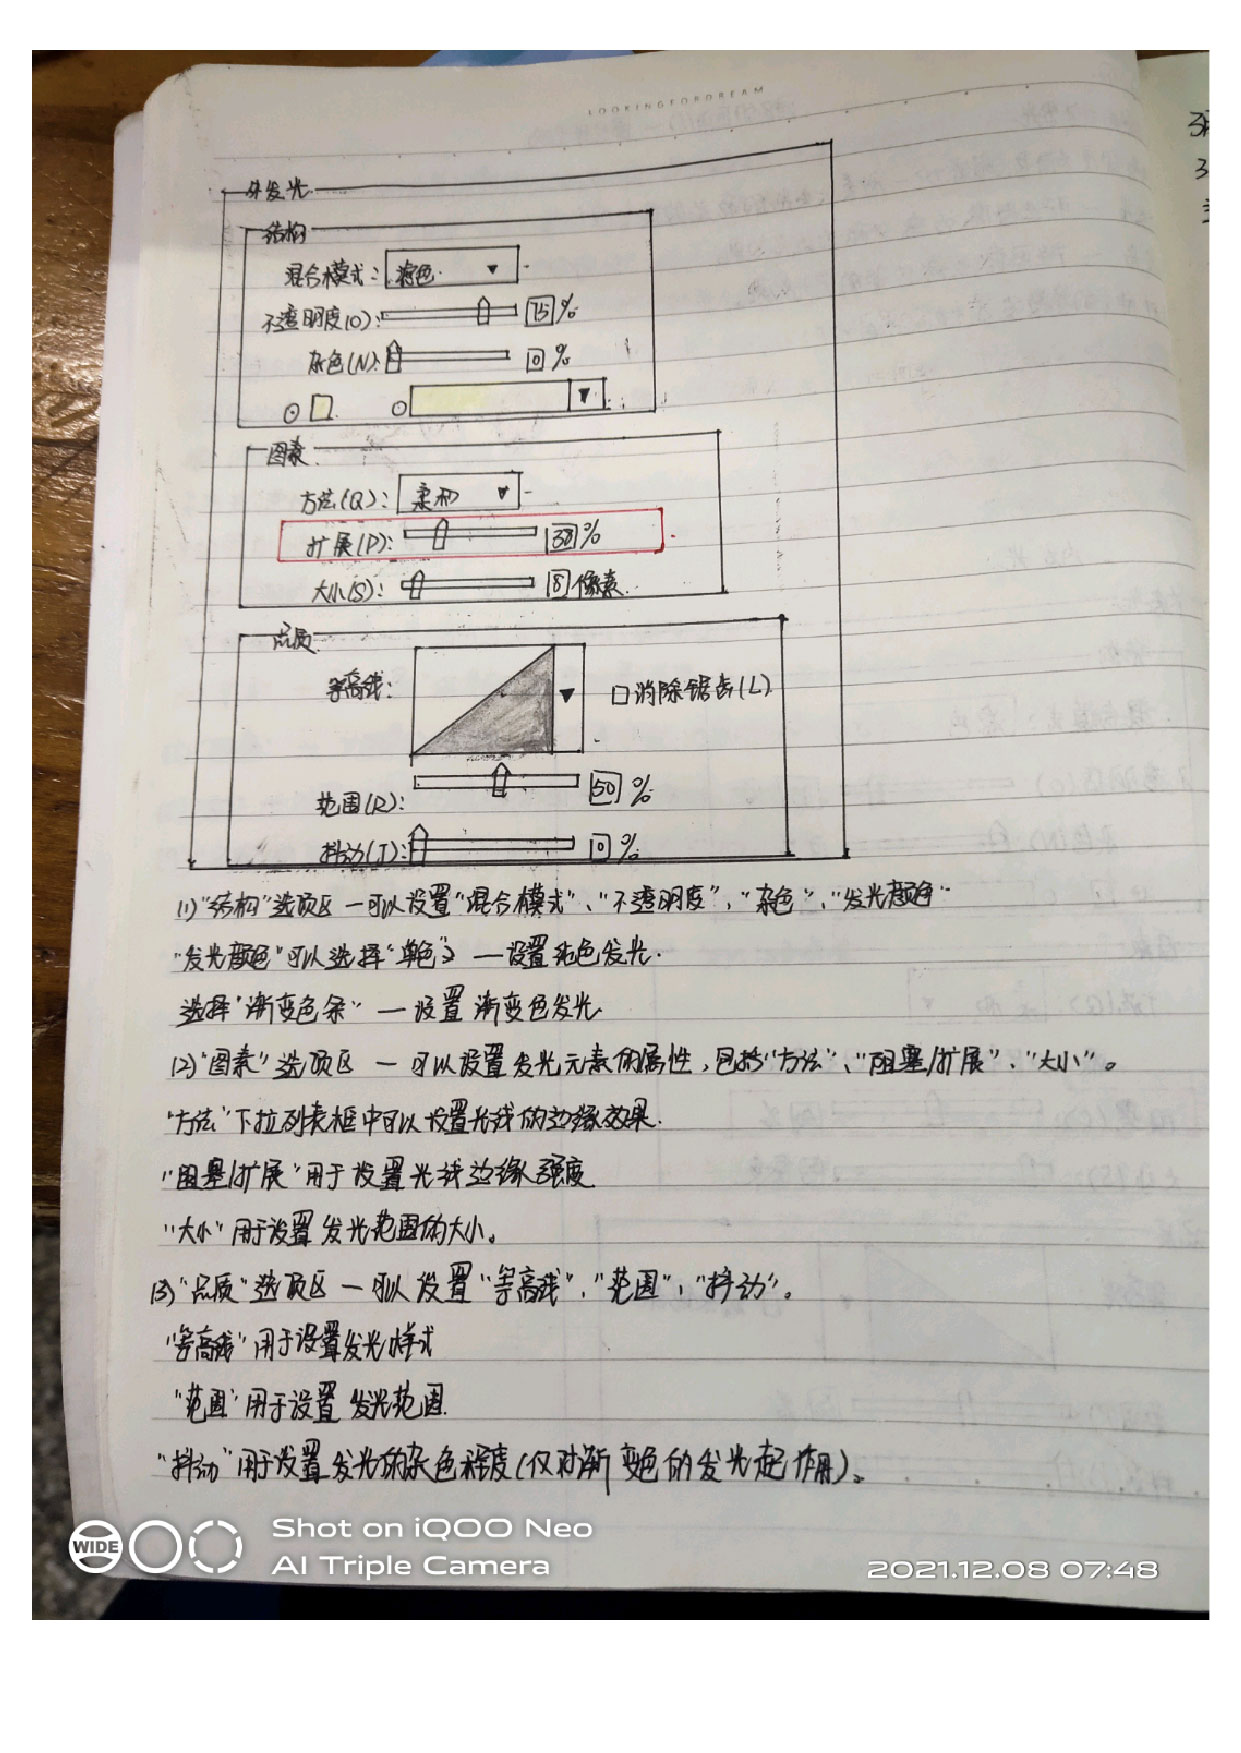 LOOKINGFORDREAM
外发光
结构
混合模式: 滤色
不透明度(O): 75 %
杂色(N): 0 %
图素
方法(Q): 柔和
扩展(P): 38 %
大小(S): 8 像素
品质
等高线: 消除锯齿(L)
范围(R): 50 %
抖动(J): 0 %
(1)"结构"选项区 — 可以设置"混合模式"、"不透明度"、"杂色"、"发光颜色"
"发光颜色"可以选择"单色" — 设置纯色发光.
选择"渐变色条" — 设置渐变色发光
(2)"图素"选项区 — 可以设置发光元素的属性,包括"方法"、"阻塞/扩展"、"大小"。
"方法"下拉列表框中可以设置光线的边缘效果.
"阻塞/扩展"用于设置光线边缘强度
"大小"用于设置发光范围的大小。
(3)"品质"选项区 — 可以设置"等高线"、"范围"、"抖动"。
"等高线"用于设置发光样式
"范围"用于设置发光范围
"抖动"用于设置发光的杂色程度(仅对渐变色的发光起作用)。
WIDE
Shot on iQOO Neo
AI Triple Camera
2021.12.08 07:48